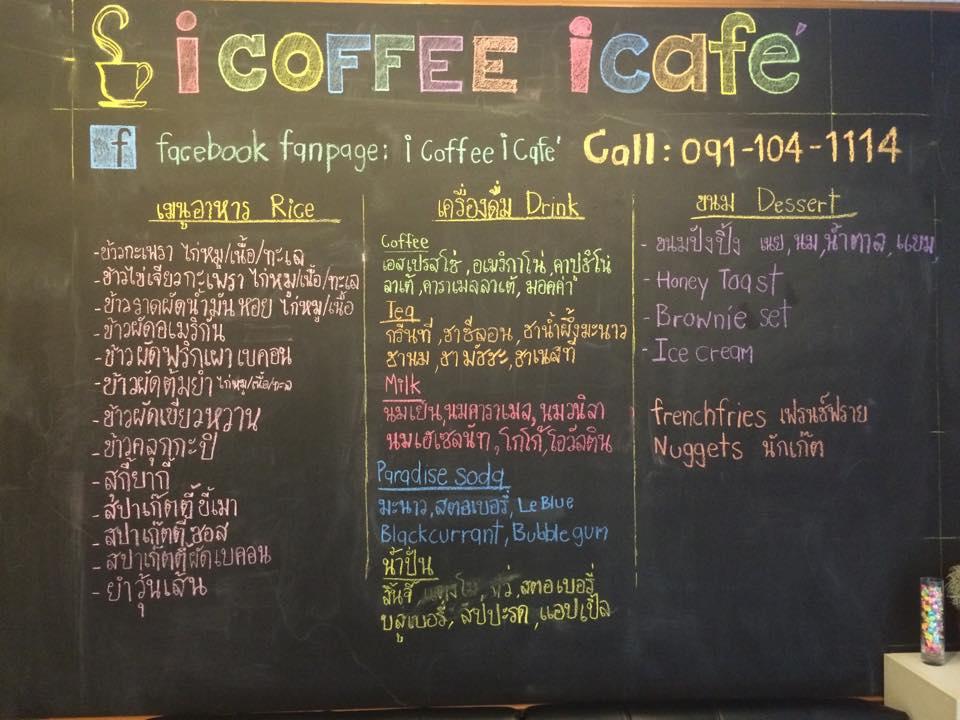 i COFFEE i café
f facebook fanpage: i Coffee i Cafe' Call: 091-104-1114
เมนูอาหาร Rice
-ข้าวกะเพรา ไก่/หมู/เนื้อ/ทะเล
-ข้าวไข่เจียวกะเพรา ไก่/หมู/เนื้อ/ทะเล
-ข้าวราดผัดน้ำมันหอย ไก่/หมู/เนื้อ
-ข้าวผัดอเมริกัน
-ข้าวผัดพริกเผาเบคอน
-ข้าวผัดต้มยำ ไก่/หมู/เนื้อ/ทะเล
-ข้าวผัดเขียวหวาน
-ข้าวคลุกกะปิ
-สุกี้ยากี้
-สปาเก๊ตตี้ขี้เมา
-สปาเก๊ตตี้ซอส
-สปาเก๊ตตี้ผัดเบคอน
-ยำวุ้นเส้น
เครื่องดื่ม Drink
Coffee
เอสเปรสโซ่, อเมริกาโน่, คาปูชิโน่
ลาเต้, คาราเมลลาเต้, มอคค่า
Tea
กรีนที, ชาซีลอน, ชาน้ำผึ้งมะนาว
ชานม, ชามัชชะ, ชาเนสที
Milk
นมเย็น, นมคาราเมล, นมวนิลา
นมเฮเซลนัท, โกโก้, โอวัลติน
Paradise soda
มะนาว, สตอเบอรี่, Le Blue
Blackcurrant, Bubble gum
น้ำปั่น
ลิ้นจี่, สตอเบอรี่
บลูเบอรี่, สัปปะรด, แอปเปิ้ล
ขนม Dessert
- ขนมปังปิ้ง เนย, นม, น้ำตาล, แยม,
- Honey Toast
- Brownie set
- Ice cream
frenchfries เฟรนช์ฟราย
Nuggets นักเก๊ต